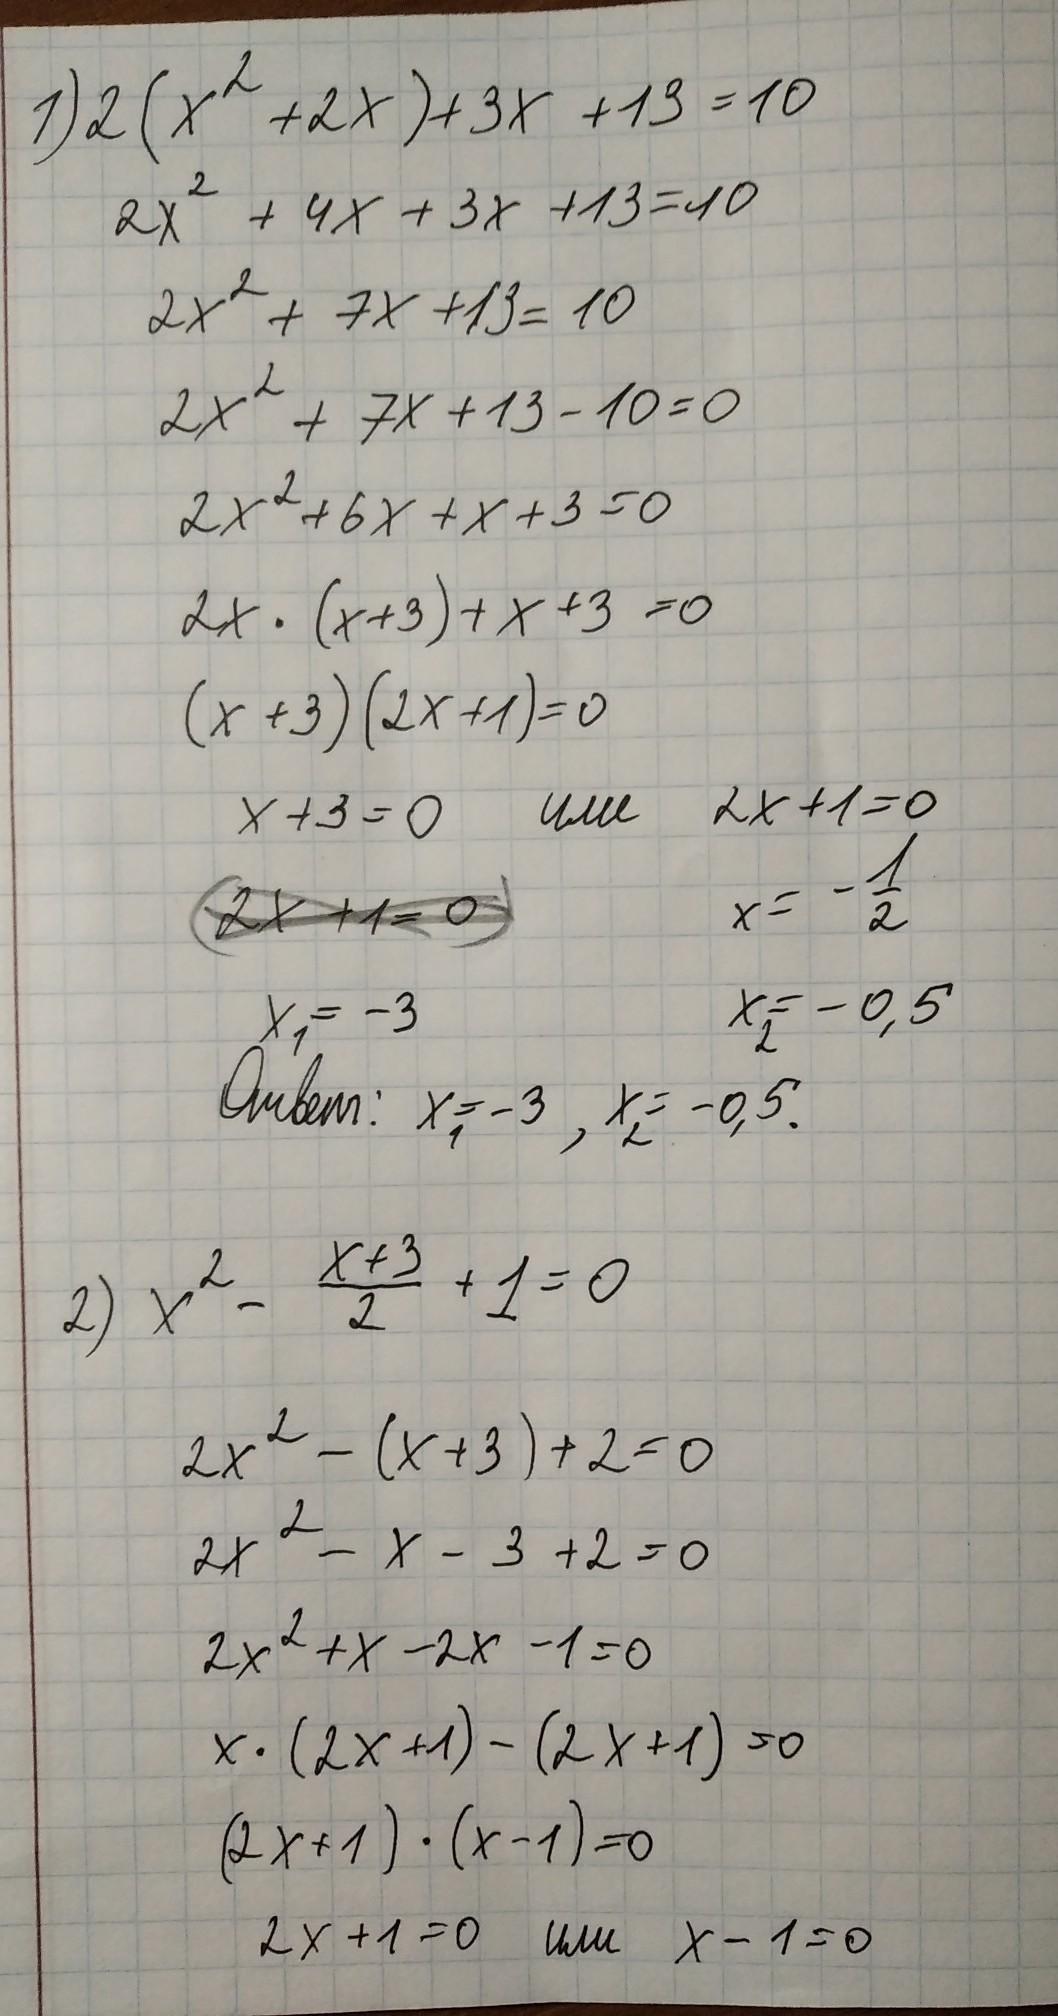 1) 2(x² + 2x) + 3x + 13 = 10
2x² + 4x + 3x + 13 = 10
2x² + 7x + 13 = 10
2x² + 7x + 13 - 10 = 0
2x² + 6x + x + 3 = 0
2x · (x + 3) + x + 3 = 0
(x + 3)(2x + 1) = 0
x + 3 = 0 или 2x + 1 = 0
2x + 1 = 0 x = - 1/2
x₁ = -3 x₂ = -0,5
Ответ: x₁ = -3, x₂ = -0,5.
2) x² - (x+3)/2 + 1 = 0
2x² - (x + 3) + 2 = 0
2x² - x - 3 + 2 = 0
2x² + x - 2x - 1 = 0
x · (2x + 1) - (2x + 1) = 0
(2x + 1) · (x - 1) = 0
2x + 1 = 0 или x - 1 = 0